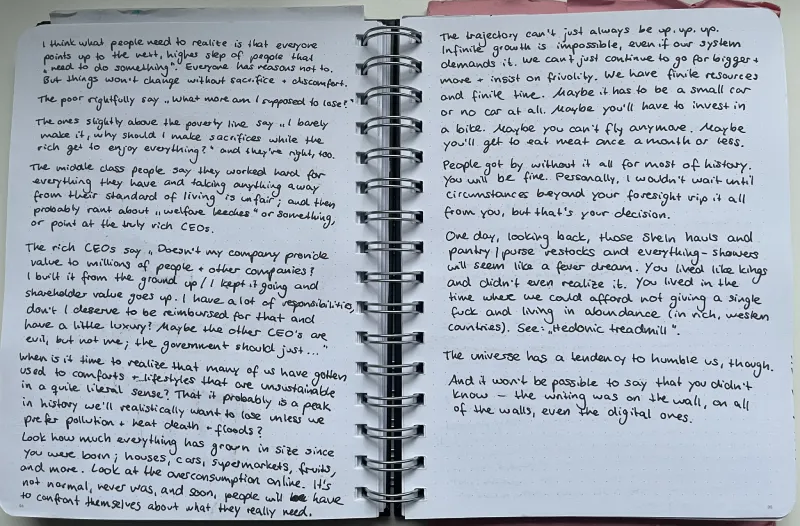 I think what people need to realize is that everyone
points up to the next, higher step of people that
„need to do something". Everyone has reasons not to.
But things won't change without sacrifice + discomfort.
The poor rightfully say „What more am I supposed to lose?"
The ones slightly above the poverty line say „I barely
make it, why should I make sacrifices while the
rich get to enjoy everything?" and they're right, too.
The middle class people say they worked hard for
everything they have and taking anything away
from their standard of living is unfair; and then
probably rant about „welfare leeches" or something,
or point at the truly rich CEOs.
The rich CEOs say „Doesn't my company provide
value to millions of people + other companies?
I built it from the ground up / I kept it going and
shareholder value goes up. I have a lot of responsibilities,
don't I deserve to be reimbursed for that and
have a little luxury? Maybe the other CEO's are
evil, but not me; the government should just..."
When is it time to realize that many of us have gotten
used to comforts + lifestyles that are unsustainable
in a quite literal sense? That it probably is a peak
in history we'll realistically want to lose unless we
prefer pollution + heat death + floods?
Look how much everything has grown in size since
you were born; houses, cars, supermarkets, fruits,
and more. Look at the overconsumption online. It's
not normal, never was, and soon, people will have
to confront themselves about what they really need.
The trajectory can't just always be up, up, up.
Infinite growth is impossible, even if our system
demands it. We can't just continue to go for bigger +
more + insist on frivolity. We have finite resources
and finite time. Maybe it has to be a small car
or no car at all. Maybe you'll have to invest in
a bike. Maybe you can't fly anymore. Maybe
you'll get to eat meat once a month or less.
People got by without it all for most of history.
You will be fine. Personally, I wouldn't wait until
circumstances beyond your foresight rip it all
from you, but that's your decision.
One day, looking back, those Shein hauls and
pantry / purse restocks and everything-showers
will seem like a fever dream. You lived like kings
and didn't even realize it. You lived in the
time where we could afford not giving a single
fuck and living in abundance (in rich, western
countries). See: „Hedonic treadmill".
The universe has a tendency to humble us, though.
And it won't be possible to say that you didn't
know – the writing was on the wall, on all
of the walls, even the digital ones.